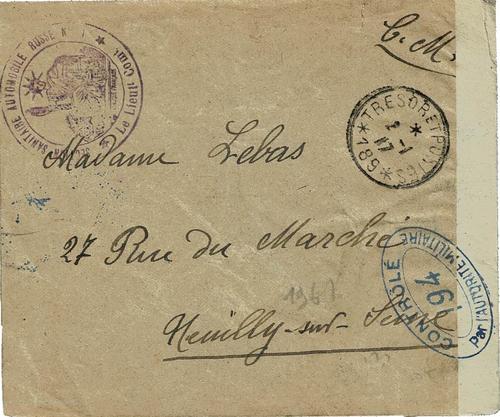 SANITAIRE AUTOMOBILE RUSSE N° 1 ★ Le Lieut Comt
C. M.
★ TRESOR ET POSTES ★ 189
2-1
17
Madame Lebas
27 Rue du Marché
1967
Neuilly-sur-Seine
CONTRÔLÉ
194
par l'AUTORITÉ MILITAIRE